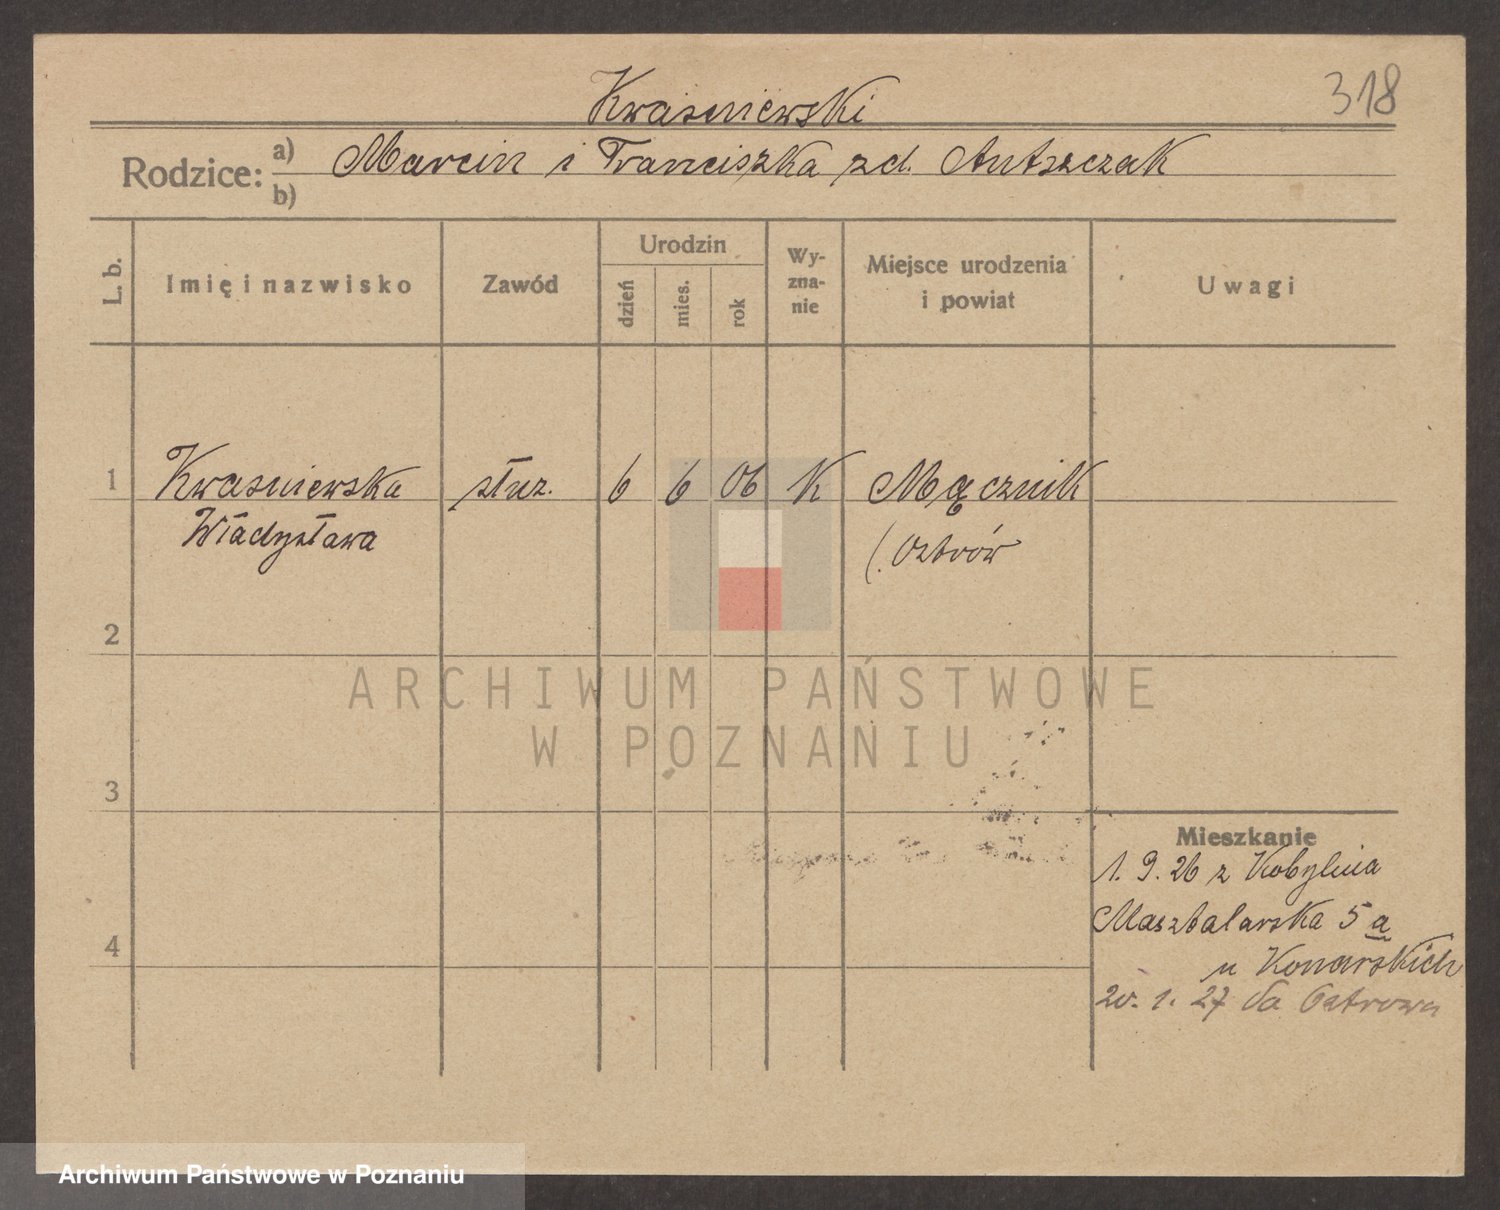 318
Kwasniewski
Rodzice: a) Marcin i Franciszka zd. Antszczak
b)
L. b.
Imię i nazwisko
Zawód
Urodzin
dzień
mies.
rok
Wy-
zna-
nie
Miejsce urodzenia
i powiat
Uwagi
1 Kwasniewska służ. 6 6 06 K Mącznik
Władysława (. Ostrów
2
ARCHIWUM PAŃSTWOWE
W POZNANIU
3
Mieszkanie
1. 9. 26 z Kobylnia
Masztalarska 5 a
4
u Konarskich
20. 1. 27 do Ostrowa
Archiwum Państwowe w Poznaniu